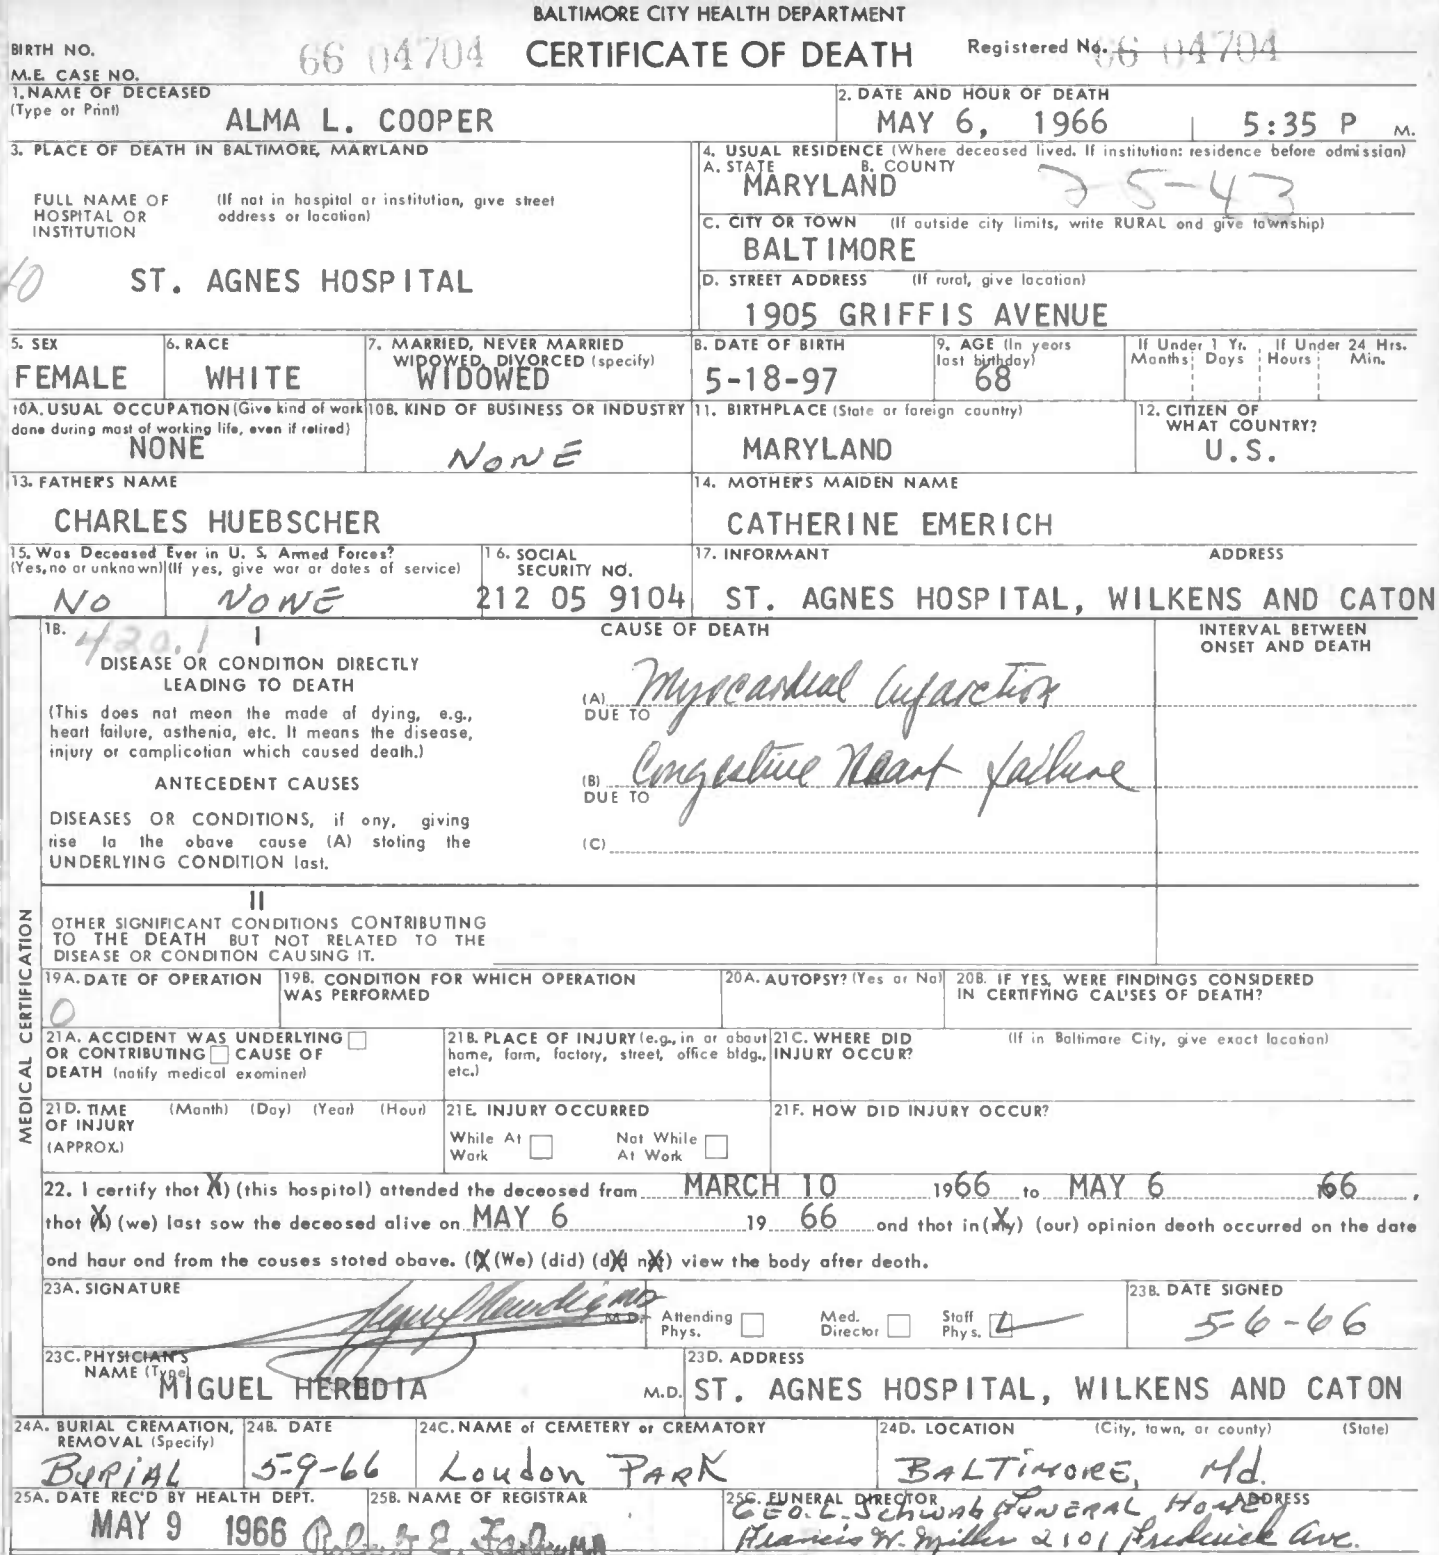 BALTIMORE CITY HEALTH DEPARTMENT
BIRTH NO. 66 04704 CERTIFICATE OF DEATH Registered No. 66 04704
M.E. CASE NO.
1. NAME OF DECEASED
(Type or Print) ALMA L. COOPER
2. DATE AND HOUR OF DEATH
MAY 6, 1966 5:35 P M.
3. PLACE OF DEATH IN BALTIMORE, MARYLAND
FULL NAME OF HOSPITAL OR INSTITUTION
(If not in hospital or institution, give street address or location)
40 ST. AGNES HOSPITAL
4. USUAL RESIDENCE (Where deceased lived. If institution: residence before admission)
A. STATE B. COUNTY
MARYLAND 25-43
C. CITY OR TOWN (If outside city limits, write RURAL and give township)
BALTIMORE
D. STREET ADDRESS (If rural, give location)
1905 GRIFFIS AVENUE
5. SEX
FEMALE
6. RACE
WHITE
7. MARRIED, NEVER MARRIED
WIDOWED, DIVORCED (specify)
WIDOWED
8. DATE OF BIRTH
5-18-97
9. AGE (In years
last birthday)
68
If Under 1 Yr. If Under 24 Hrs.
Months Days Hours Min.
10A. USUAL OCCUPATION (Give kind of work
done during most of working life, even if retired)
NONE
10B. KIND OF BUSINESS OR INDUSTRY
NONE
11. BIRTHPLACE (State or foreign country)
MARYLAND
12. CITIZEN OF
WHAT COUNTRY?
U.S.
13. FATHER'S NAME
CHARLES HUEBSCHER
14. MOTHER'S MAIDEN NAME
CATHERINE EMERICH
15. Was Deceased Ever in U. S. Armed Forces?
(Yes, no or unknown) (If yes, give war or dates of service)
NO NONE
16. SOCIAL
SECURITY NO.
212 05 9104
17. INFORMANT ADDRESS
ST. AGNES HOSPITAL, WILKENS AND CATON
MEDICAL CERTIFICATION
18. 420.1 I
DISEASE OR CONDITION DIRECTLY
LEADING TO DEATH
(This does not mean the mode of dying, e.g.,
heart failure, asthenia, etc. It means the disease,
injury or complication which caused death.)
ANTECEDENT CAUSES
DISEASES OR CONDITIONS, if any, giving
rise to the above cause (A) stating the
UNDERLYING CONDITION last.
CAUSE OF DEATH
(A) Myocardial Infarction
DUE TO
(B) Congestive Heart failure
DUE TO
(C)
INTERVAL BETWEEN
ONSET AND DEATH
II
OTHER SIGNIFICANT CONDITIONS CONTRIBUTING
TO THE DEATH BUT NOT RELATED TO THE
DISEASE OR CONDITION CAUSING IT.
19A. DATE OF OPERATION
0
19B. CONDITION FOR WHICH OPERATION
WAS PERFORMED
20A. AUTOPSY? (Yes or No)
20B. IF YES, WERE FINDINGS CONSIDERED
IN CERTIFYING CAUSES OF DEATH?
21A. ACCIDENT WAS UNDERLYING
OR CONTRIBUTING CAUSE OF
DEATH (notify medical examiner)
21B. PLACE OF INJURY (e.g., in or about
home, farm, factory, street, office bldg.,
etc.)
21C. WHERE DID
INJURY OCCUR?
(If in Baltimore City, give exact location)
21D. TIME (Month) (Day) (Year) (Hour)
OF INJURY
(APPROX.)
21E. INJURY OCCURRED
While At Work Not While At Work
21F. HOW DID INJURY OCCUR?
22. I certify that (X) (this hospital) attended the deceased from MARCH 10 1966 to MAY 6 1966,
that (X) (we) last saw the deceased alive on MAY 6 19 66 and that in (my) (our) opinion death occurred on the date
and hour and from the causes stated above. (I) (We) (did) (did not) view the body after death.
23A. SIGNATURE
M.D.
Attending Phys. Med. Director Staff Phys.
23B. DATE SIGNED
5-6-66
23C. PHYSICIAN'S
NAME (Type)
MIGUEL HEREDIA M.D.
23D. ADDRESS
ST. AGNES HOSPITAL, WILKENS AND CATON
24A. BURIAL CREMATION,
REMOVAL (Specify)
BURIAL
24B. DATE
5-9-66
24C. NAME of CEMETERY or CREMATORY
Loudon PARK
24D. LOCATION (City, town, or county) (State)
BALTIMORE, Md.
25A. DATE REC'D BY HEALTH DEPT.
MAY 9 1966
25B. NAME OF REGISTRAR
Robert E. Farber MD
25C. FUNERAL DIRECTOR ADDRESS
GEO. L. SCHWAB FUNERAL HOME
Francis W. Miller 2101 Frederick Ave.